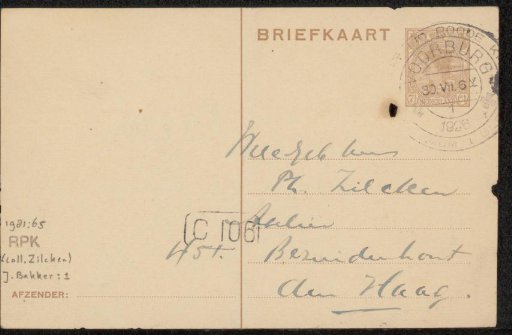 BRIEFKAART
VOORBURG
30.VII.6
1926
Ph. Zilcken
Atelier
Hst. Bezuidenhout
den Haag.
C 106
1981:65
RPK
(coll. Zilcken)
J. Bakker: 1
AFZENDER: